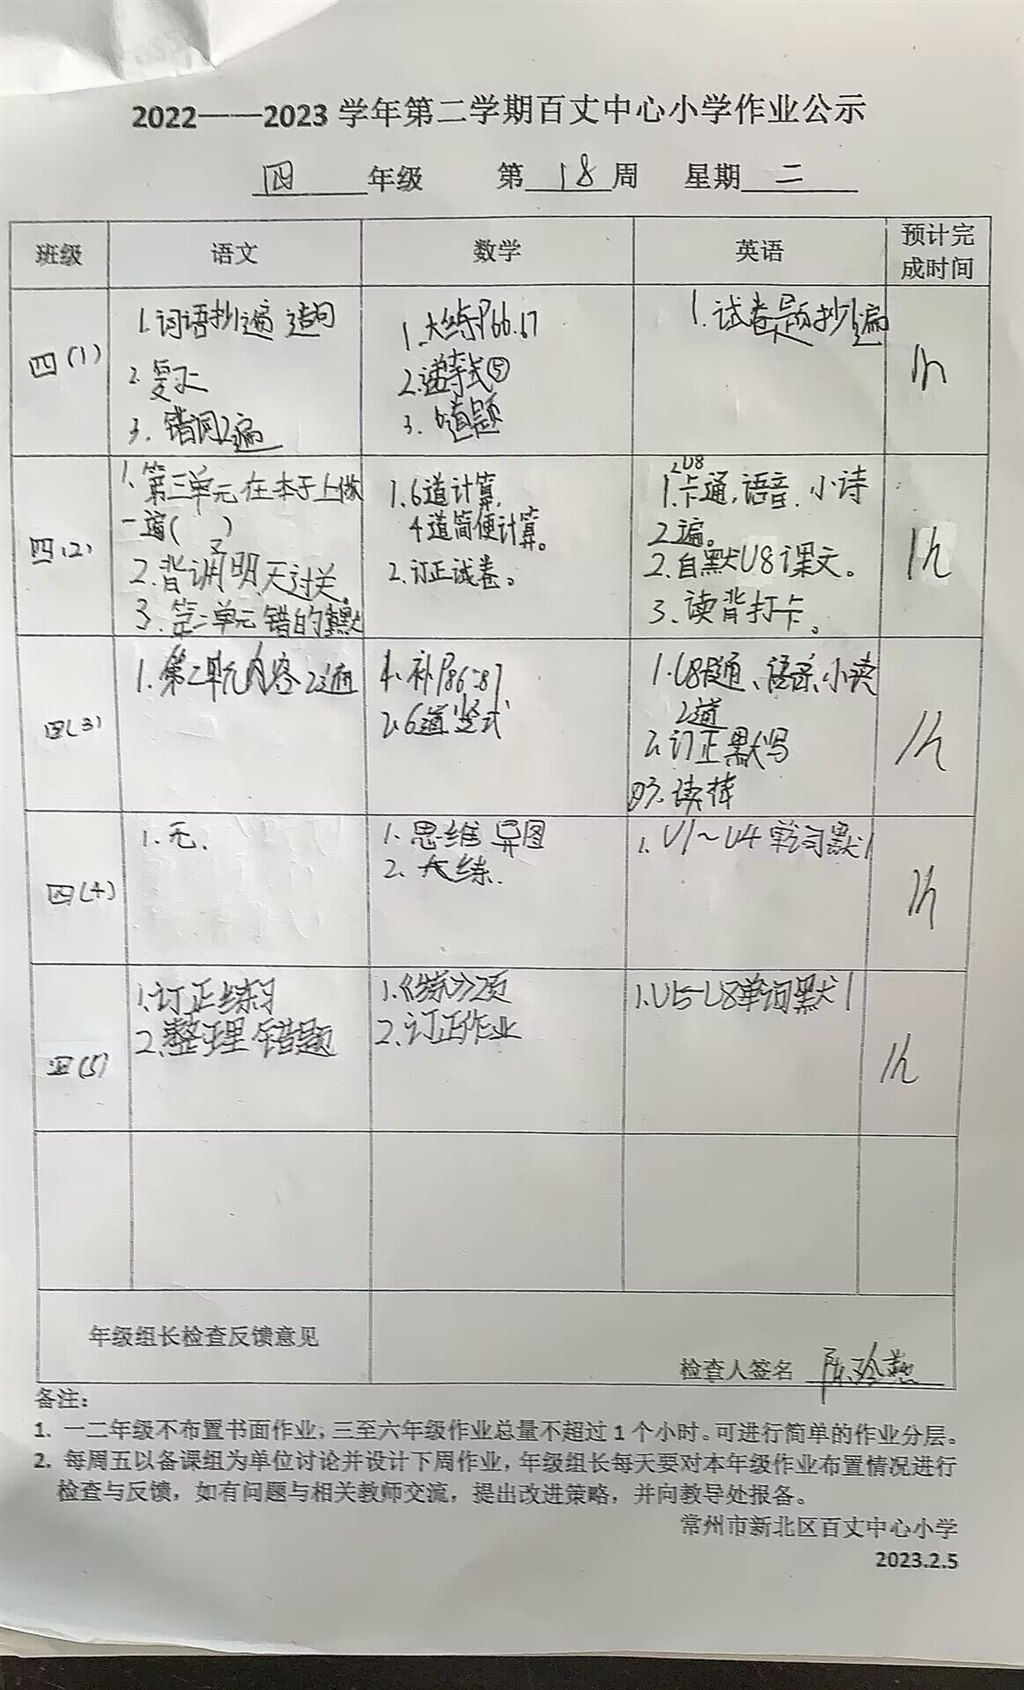 2022——2023 学年第二学期百丈中心小学作业公示
四 年级 第 18 周 星期 二
班级 语文 数学 英语 预计完成时间
四(1)
1.词语抄1遍 造句
2.复习
3.错词2遍
1.大练P66.67
2.递等式⑤
3.
1.试卷题抄1遍
1h
四(2)
1.第三单元在本子上做
一遍( )
2.背 明天过关。
3.第二单元错的重默
1.6道计算,
4道简便计算。
2.订正试卷。
U8
1.卡通,语音,小诗
2遍。
2.自默U8课文。
3.读背打卡。
1h
四(3)
1.第二单元内容2遍
1.补P86-87
2.6道竖式
1.U8卡通、语音、小读
2遍
2.订正默写
3.读
1h
四(4)
1.无.
1.思维导图
2.大练.
1.U1~U4单词默1
1h
四(5)
1.订正练习
2.整理错题
1.《练》2页
2.订正作业
1.U5-U8单词默1
1h
年级组长检查反馈意见
检查人签名
备注:
1. 一二年级不布置书面作业;三至六年级作业总量不超过1个小时。可进行简单的作业分层。
2. 每周五以备课组为单位讨论并设计下周作业,年级组长每天要对本年级作业布置情况进行
检查与反馈,如有问题与相关教师交流,提出改进策略,并向教导处报备。
常州市新北区百丈中心小学
2023.2.5